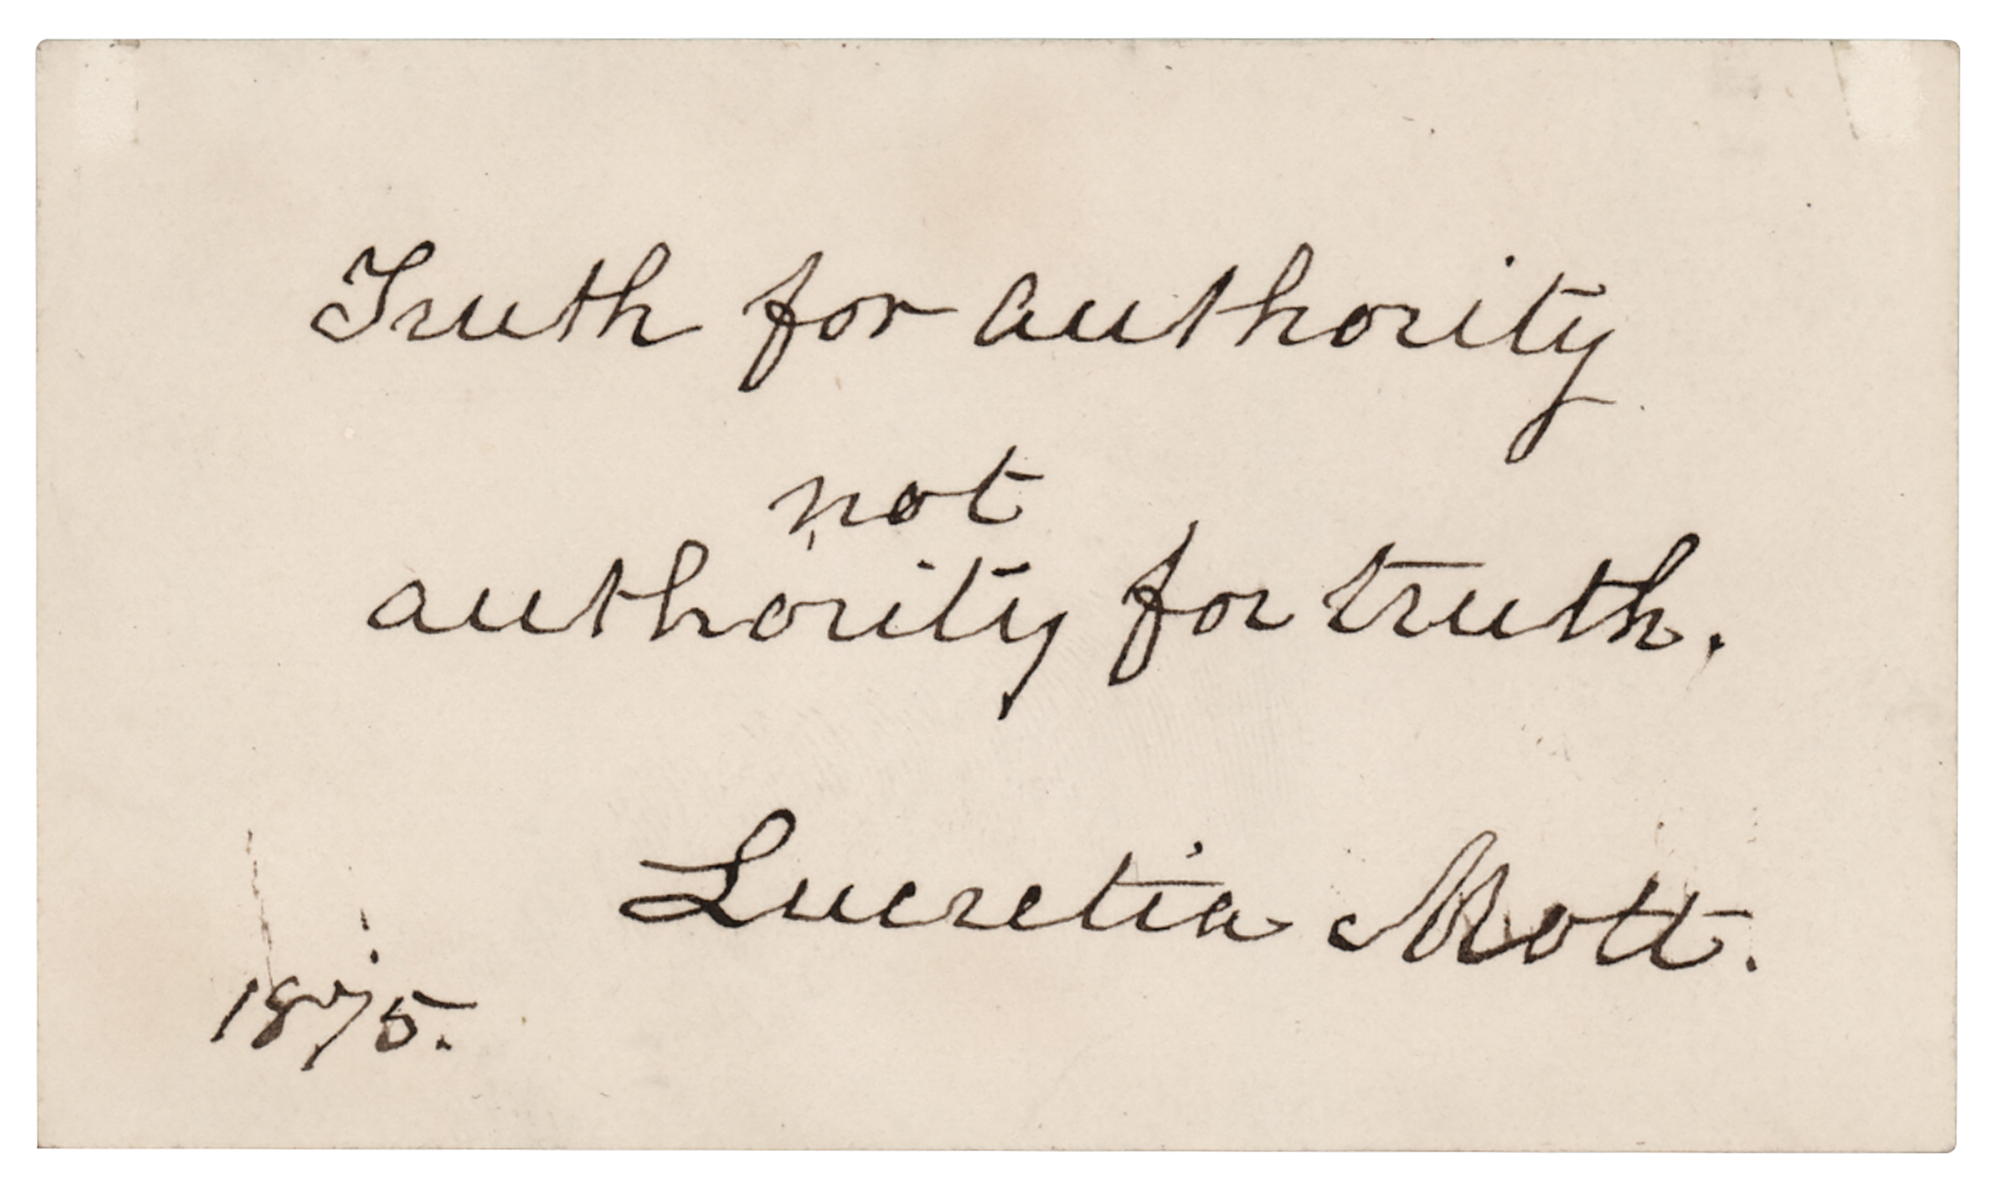 Truth for authority
not
authority for truth.
Lucretia Mott.
1875.